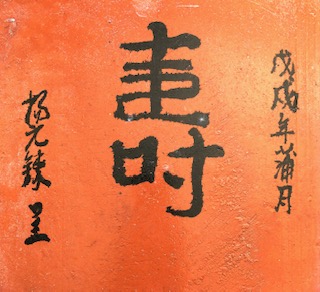 戊戌年蒲月
壽
杨元錸呈